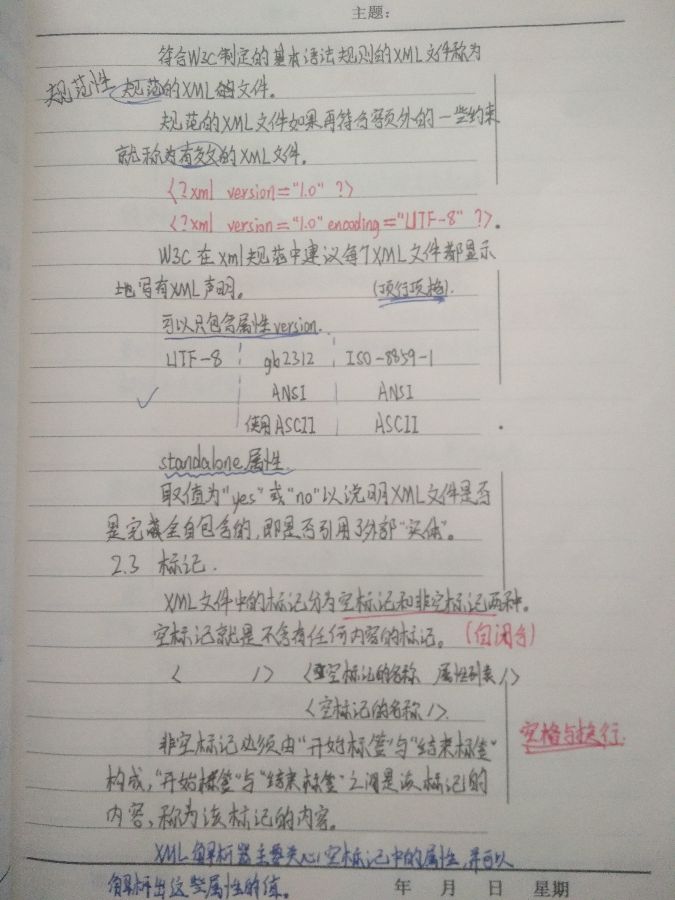 主题：
符合W3C制定的基本语法规则的XML文件称为
规范性 规范的XML的文件。
规范的XML文件如果再符合额外的一些约束
就称为有效的XML文件。
<?xml version="1.0" ?>
<?xml version="1.0" encoding="UTF-8" ?>.
W3C在xml规范中建议每个XML文件都显示
地写有XML声明。 (顶行顶格).
可以只包含属性version.
UTF-8 gb2312 ISO-8859-1
✓ ANSI ANSI
使用ASCII ASCII
standalone属性.
取值为"yes"或"no"以说明XML文件是否
是完全自包含的,即是否引用了外部"实体"。
2.3 标记.
XML文件中的标记分为空标记和非空标记两种。
空标记就是不含有任何内容的标记。(自闭合)
< /> <空标记的名称 属性列表/>
<空标记的名称/>.
空格与换行.
非空标记必须由"开始标签"与"结束标签"
构成,"开始标签"与"结束标签"之间是该标记的
内容,称为该标记的内容。
XML解析器主要关心空标记中的属性,并可以
解析出这些属性的值。
年 月 日 星期